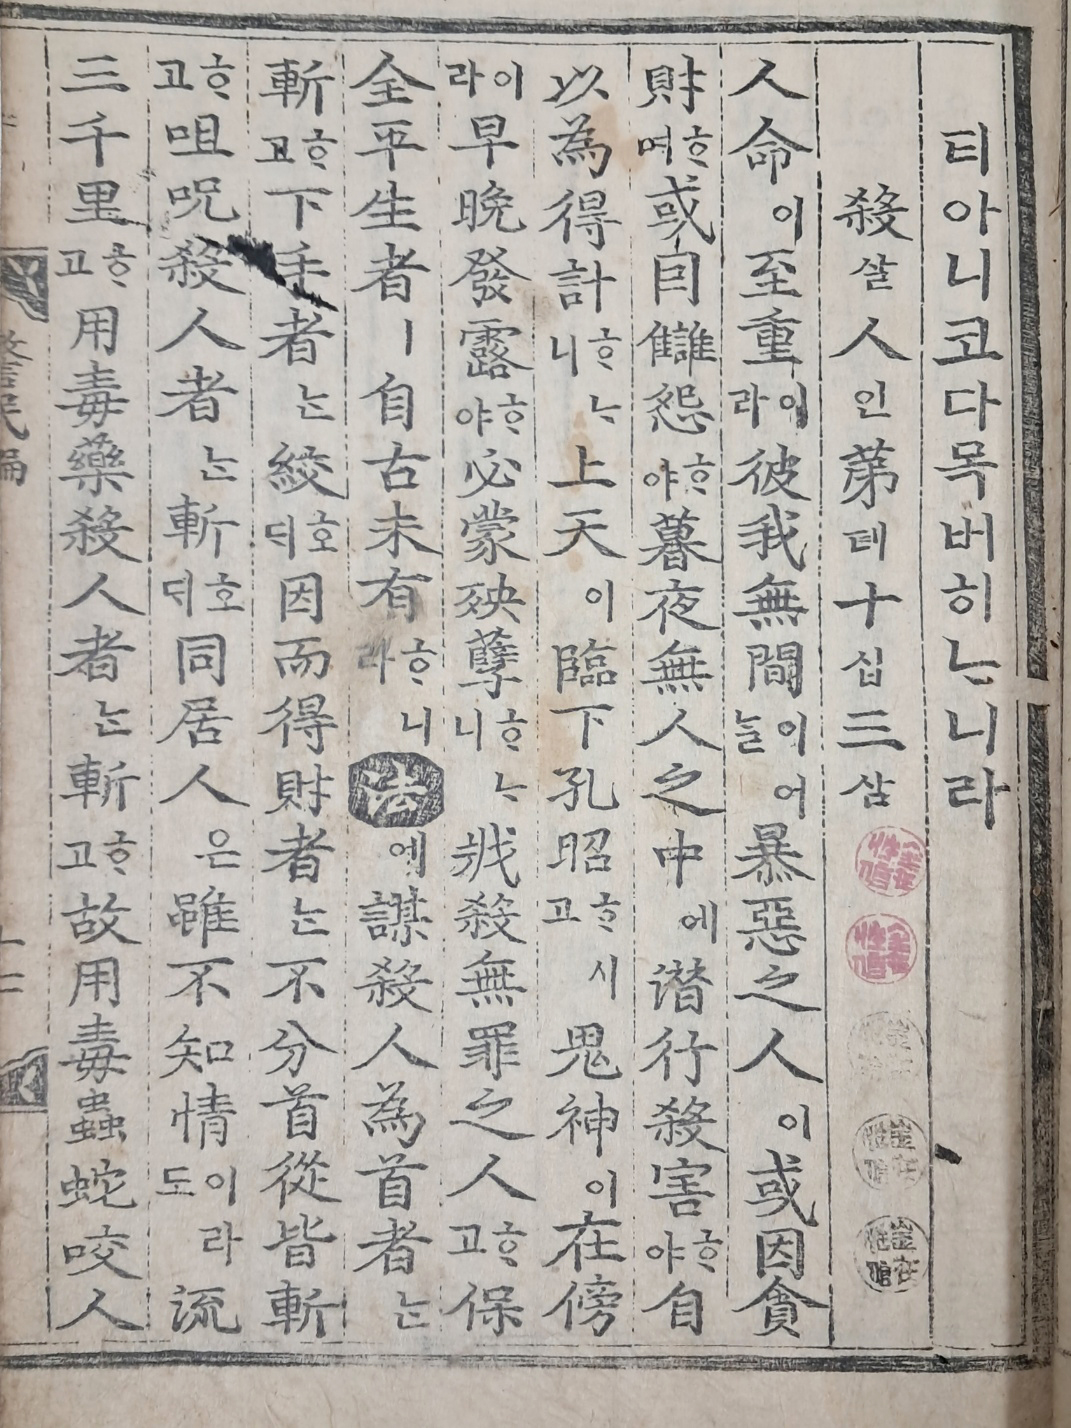 티아니코다목버히ᄂᆞ니라
殺살人인第뎨十십三삼
人命이至重이라彼我無間이어늘暴惡之人이或因貪
財ᄒᆞ며或因讎怨ᄒᆞ야暮夜無人之中에潜行殺害ᄒᆞ야自
以為得計ᄒᆞᄂᆞ니上天이臨下孔昭ᄒᆞ시고鬼神이在傍
이라早晩發露ᄒᆞ야必蒙殃孼ᄒᆞᄂᆞ니戕殺無罪之人ᄒᆞ고保
全平生者ㅣ自古未有ᄒᆞ니라法에謀殺人為首者ᄂᆞᆫ
斬ᄒᆞ고下手者ᄂᆞᆫ絞호ᄃᆡ因而得財者ᄂᆞᆫ不分首從皆斬
ᄒᆞ고咀呪殺人者ᄂᆞᆫ斬호ᄃᆡ同居人은雖不知情이라도流
三千里ᄒᆞ고用毒藥殺人者ᄂᆞᆫ斬ᄒᆞ고故用毒蟲蛇咬人
警民編